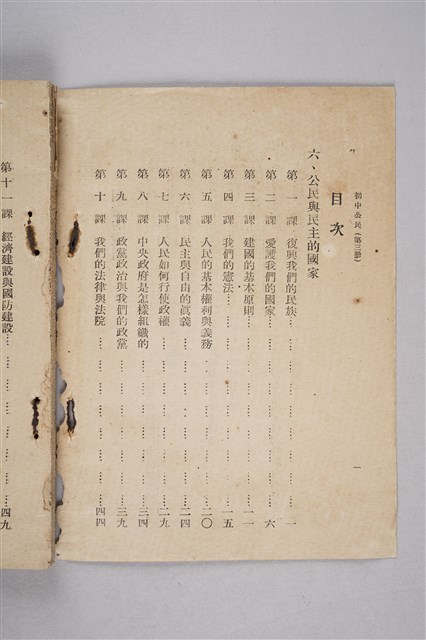 初中公民（第三冊）
目次
一
六、公民與民主的國家
第一課 復興我們的民族…………………………一
第二課 愛護我們的國家…………………………六
第三課 建國的基本原則…………………………一一
第四課 我們的憲法…………………………一五
第五課 人民的基本權利與義務…………………………二〇
第六課 民主與自由的真義…………………………二四
第七課 人民如何行使政權…………………………二九
第八課 中央政府是怎樣組織的…………………………三四
第九課 政黨政治與我們的政黨…………………………三九
第十課 我們的法律與法院…………………………四四
第十一課 經濟建設與國防建設…………………………四九